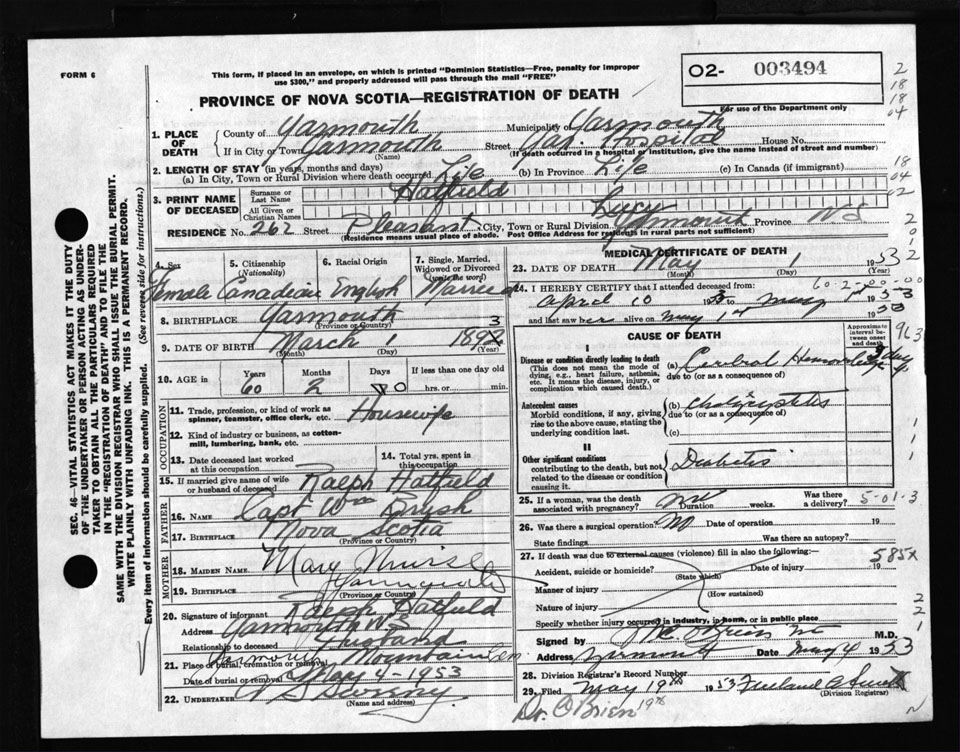 FORM 6
This form, if placed in an envelope, on which is printed "Dominion Statistics—Free, penalty for improper
use $300," and properly addressed will pass through the mail "FREE"
O2- 003494
For use of the Department only
2
18
18
04
PROVINCE OF NOVA SCOTIA—REGISTRATION OF DEATH
1. PLACE OF DEATH
County of Yarmouth Municipality of Yarmouth
If in City or Town Yarmouth Street Yar Hospital House No.
(Name) (If death occurred in a hospital or institution, give the name instead of street and number)
2. LENGTH OF STAY (in years, months and days)
(a) In City, Town or Rural Division where death occurred Life (b) In Province Life (c) In Canada (if immigrant)
18
04
02
3. PRINT NAME OF DECEASED
Surname or Last Name Hatfield
All Given or Christian Names Lucy
RESIDENCE No. 262 Street Pleasant City, Town or Rural Division Yarmouth Province N.S
(Residence means usual place of abode. Post Office Address for residents in rural parts not sufficient)
2
0
1
2
4. Sex
Female
5. Citizenship
(Nationality)
Canadian
6. Racial Origin
English
7. Single, Married,
Widowed or Divorced
(write the word)
Married
8. BIRTHPLACE Yarmouth
(Province or Country)
9. DATE OF BIRTH March 1 1892 3
(Month) (Day) (Year)
10. AGE in Years Months Days If less than one day old
60 2 0 hrs. or min.
OCCUPATION
11. Trade, profession, or kind of work as
spinner, teamster, office clerk, etc. Housewife
12. Kind of industry or business, as cotton-
mill, lumbering, bank, etc.
13. Date deceased last worked
at this occupation
14. Total yrs. spent in
this occupation
15. If married give name of wife
or husband of deceased Ralph Hatfield
FATHER
16. NAME Capt Wm
17. BIRTHPLACE Nova Scotia
(Province or Country)
MOTHER
18. MAIDEN NAME Mary
19. BIRTHPLACE
(Province or Country)
20. Signature of informant Ralph Hatfield
Address Yarmouth N.S
Relationship to deceased Husband
21. Place of burial, cremation or removal Mountain Cem
Date of burial or removal May 4-1953
22. UNDERTAKER V S Sweeny
(Name and address)
MEDICAL CERTIFICATE OF DEATH
23. DATE OF DEATH May 1 1953
(Month) (Day) (Year)
24. I HEREBY CERTIFY that I attended deceased from: 60-2-00-00
April 10 1953 to May 1st 1953
and last saw her alive on May 1st 1953
CAUSE OF DEATH
Approximate
interval be-
tween onset
and death
963
I
Disease or condition directly leading to death
(This does not mean the mode of
dying, e.g., heart failure, asthenia,
etc. It means the disease, injury, or
complication which caused death.)
(a) Cerebral Hemorrhage
due to (or as a consequence of)
Antecedent causes
Morbid conditions, if any, giving
rise to the above cause, stating the
underlying condition last.
(b) Cholicystitis
due to (or as a consequence of)
(c)
II
Other significant conditions
contributing to the death, but not
related to the disease or condition
causing it.
Diabetis
1
1
25. If a woman, was the death
associated with pregnancy? No Duration weeks. Was there
a delivery? 5-01-3
26. Was there a surgical operation? No Date of operation 19
State findings Was there an autopsy?
27. If death was due to external causes (violence) fill in also the following:
585X
Accident, suicide or homicide? Date of injury 19
(State which)
Manner of injury
(How sustained)
Nature of injury
Specify whether injury occurred in industry, in home, or in public place
2
2
1
Signed by M.C. O'Brien M.D.
Address Yarmouth Date May 4 1953
28. Division Registrar's Record Number
29. Filed May 19th 1953
(Division Registrar)
Dr. O'Brien 19th
SEC. 46—VITAL STATISTICS ACT MAKES IT THE DUTY
OF THE UNDERTAKER OR PERSON ACTING AS UNDER-
TAKER TO OBTAIN ALL THE PARTICULARS REQUIRED
IN THE "REGISTRATION OF DEATH" AND TO FILE THE
SAME WITH THE DIVISION REGISTRAR WHO SHALL ISSUE THE BURIAL PERMIT.
WRITE PLAINLY WITH UNFADING INK. THIS IS A PERMANENT RECORD.
Every item of information should be carefully supplied. (See reverse side for instructions.)